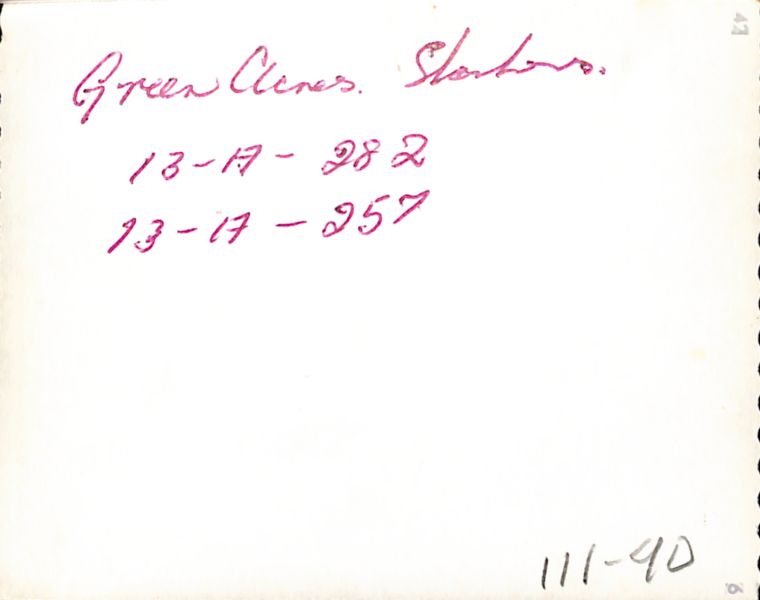 Green Acres.
13-17-282
13-17-257
111-40